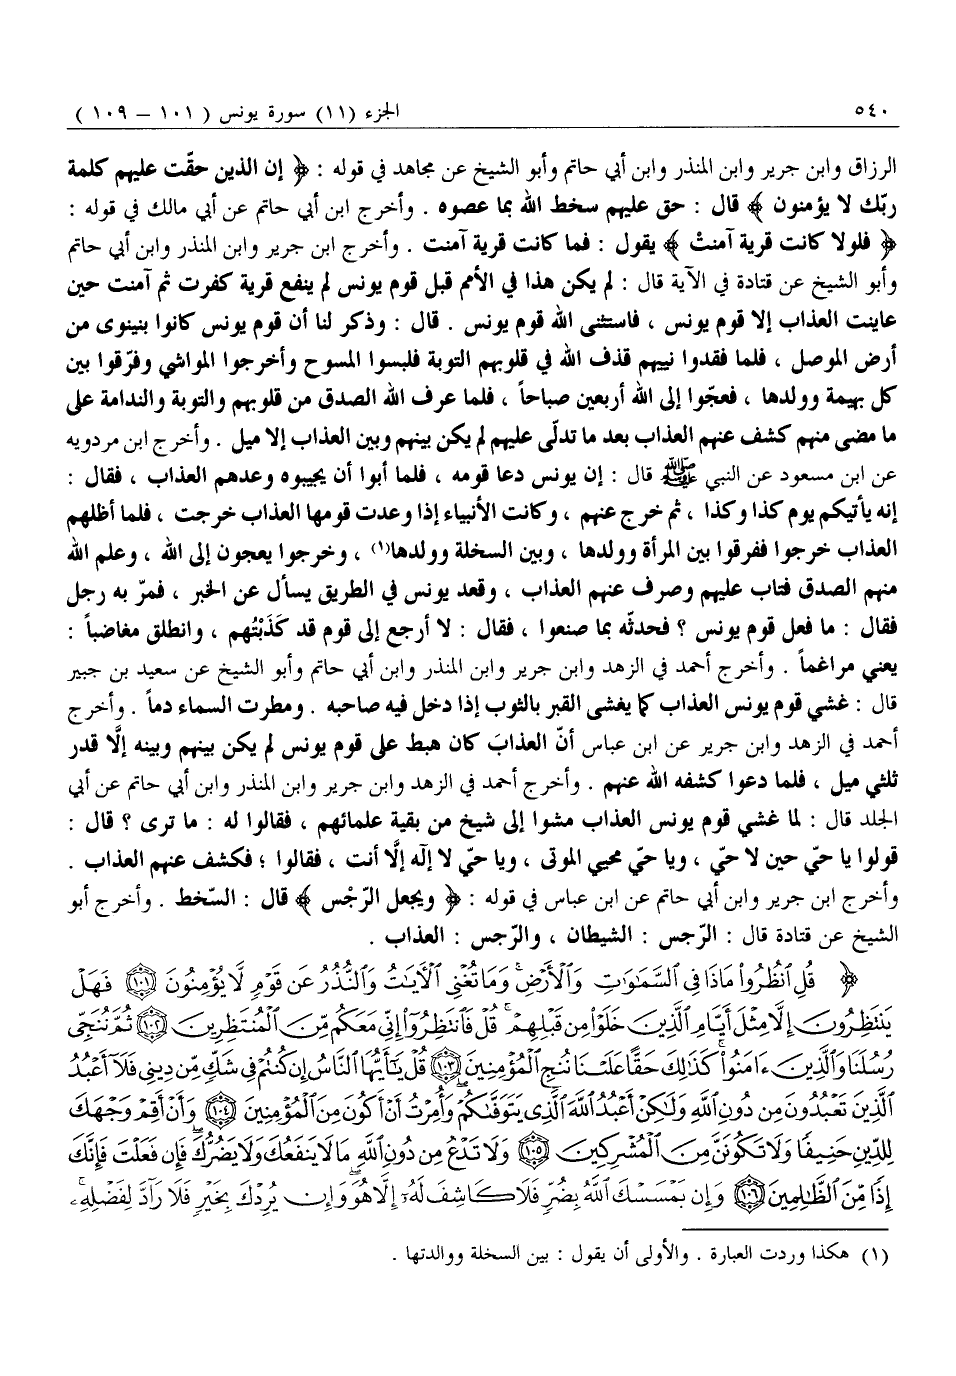 ٥٤٠ الجزء (١١) سورة يونس ( ١٠١ – ١٠٩ )
الرزاق وابن جرير وابن المنذر وابن أبي حاتم وأبو الشيخ عن مجاهد في قوله : ﴿ إن الذين حقّت عليهم كلمة
ربّك لا يؤمنون ﴾ قال : حق عليهم سخط الله بما عصوه . وأخرج ابن أبي حاتم عن أبي مالك في قوله :
﴿ فلولا كانت قرية آمنتْ ﴾ يقول : فما كانت قرية آمنت . وأخرج ابن جرير وابن المنذر وابن أبي حاتم
وأبو الشيخ عن قتادة في الآية قال : لم يكن هذا في الأمم قبل قوم يونس لم ينفع قرية كفرت ثم آمنت حين
عاينت العذاب إلا قوم يونس ، فاستثنى الله قوم يونس . قال : وذكر لنا أن قوم يونس كانوا بنينوى من
أرض الموصل ، فلما فقدوا نبيهم قذف الله في قلوبهم التوبة فلبسوا المسوح وأخرجوا المواشي وفرّقوا بين
كل بهيمة وولدها ، فعجّوا إلى الله أربعين صباحاً ، فلما عرف الله الصدق من قلوبهم والتوبة والندامة على
ما مضى منهم كشف عنهم العذاب بعد ما تدلّى عليهم لم يكن بينهم وبين العذاب إلا ميل . وأخرج ابن مردويه
عن ابن مسعود عن النبي ﷺ قال : إن يونس دعا قومه ، فلما أبوا أن يجيبوه وعدهم العذاب ، فقال :
إنه يأتيكم يوم كذا وكذا ، ثم خرج عنهم ، وكانت الأنبياء إذا وعدت قومها العذاب خرجت ، فلما أظلهم
العذاب خرجوا ففرقوا بين المرأة وولدها ، وبين السخلة وولدها(١) ، وخرجوا يعجون إلى الله ، وعلم الله
منهم الصدق فتاب عليهم وصرف عنهم العذاب ، وقعد يونس في الطريق يسأل عن الخبر ، فمرّ به رجل
فقال : ما فعل قوم يونس ؟ فحدثّه بما صنعوا ، فقال : لا أرجع إلى قوم قد كَذَبْتُهم ، وانطلق مغاضباً :
يعني مراغماً . وأخرج أحمد في الزهد وابن جرير وابن المنذر وابن أبي حاتم وأبو الشيخ عن سعيد بن جبير
قال : غشي قوم يونس العذاب كما يغشى القبر بالثوب إذا دخل فيه صاحبه . ومطرت السماء دماً . وأخرج
أحمد في الزهد وابن جرير عن ابن عباس أنّ العذابَ كان هبط على قوم يونس لم يكن بينهم وبينه إلَّا قدر
ثلثي ميل ، فلما دعوا كشفه الله عنهم . وأخرج أحمد في الزهد وابن جرير وابن المنذر وابن أبي حاتم عن أبي
الجلد قال : لما غشي قوم يونس العذاب مشوا إلى شيخ من بقية علمائهم ، فقالوا له : ما ترى ؟ قال :
قولوا يا حيّ حين لا حيّ ، ويا حيّ محيي الموتى ، ويا حيّ لا إلٰه إلَّا أنت ، فقالوا ؛ فكشف عنهم العذاب .
وأخرج ابن جرير وابن أبي حاتم عن ابن عباس في قوله : ﴿ ويجعل الرّجْس ﴾ قال : السّخط . وأخرج أبو
الشيخ عن قتادة قال : الرّجس : الشيطان ، والرّجس : العذاب .
﴿ قُلِ ٱنظُرُوا۟ مَاذَا فِى ٱلسَّمَـٰوَٰتِ وَٱلْأَرْضِ ۚ وَمَا تُغْنِى ٱلْـَٔايَـٰتُ وَٱلنُّذُرُ عَن قَوْمٍ لَّا يُؤْمِنُونَ ﴿١٠١﴾ فَهَلْ
يَنتَظِرُونَ إِلَّا مِثْلَ أَيَّامِ ٱلَّذِينَ خَلَوْا۟ مِن قَبْلِهِمْ ۚ قُلْ فَٱنتَظِرُوٓا۟ إِنِّى مَعَكُم مِّنَ ٱلْمُنتَظِرِينَ ﴿١٠٢﴾ ثُمَّ نُنَجِّى
رُسُلَنَا وَٱلَّذِينَ ءَامَنُوا۟ ۚ كَذَٰلِكَ حَقًّا عَلَيْنَا نُنجِ ٱلْمُؤْمِنِينَ ﴿١٠٣﴾ قُلْ يَـٰٓأَيُّهَا ٱلنَّاسُ إِن كُنتُمْ فِى شَكٍّ مِّن دِينِى فَلَآ أَعْبُدُ
ٱلَّذِينَ تَعْبُدُونَ مِن دُونِ ٱللَّهِ وَلَـٰكِنْ أَعْبُدُ ٱللَّهَ ٱلَّذِى يَتَوَفَّىٰكُمْ ۖ وَأُمِرْتُ أَنْ أَكُونَ مِنَ ٱلْمُؤْمِنِينَ ﴿١٠٤﴾ وَأَنْ أَقِمْ وَجْهَكَ
لِلدِّينِ حَنِيفًا وَلَا تَكُونَنَّ مِنَ ٱلْمُشْرِكِينَ ﴿١٠٥﴾ وَلَا تَدْعُ مِن دُونِ ٱللَّهِ مَا لَا يَنفَعُكَ وَلَا يَضُرُّكَ ۖ فَإِن فَعَلْتَ فَإِنَّكَ
إِذًا مِّنَ ٱلظَّـٰلِمِينَ ﴿١٠٦﴾ وَإِن يَمْسَسْكَ ٱللَّهُ بِضُرٍّ فَلَا كَاشِفَ لَهُۥٓ إِلَّا هُوَ ۖ وَإِن يُرِدْكَ بِخَيْرٍ فَلَا رَآدَّ لِفَضْلِهِۦ ۚ
(١) هكذا وردت العبارة . والأولى أن يقول : بين السخلة ووالدتها .